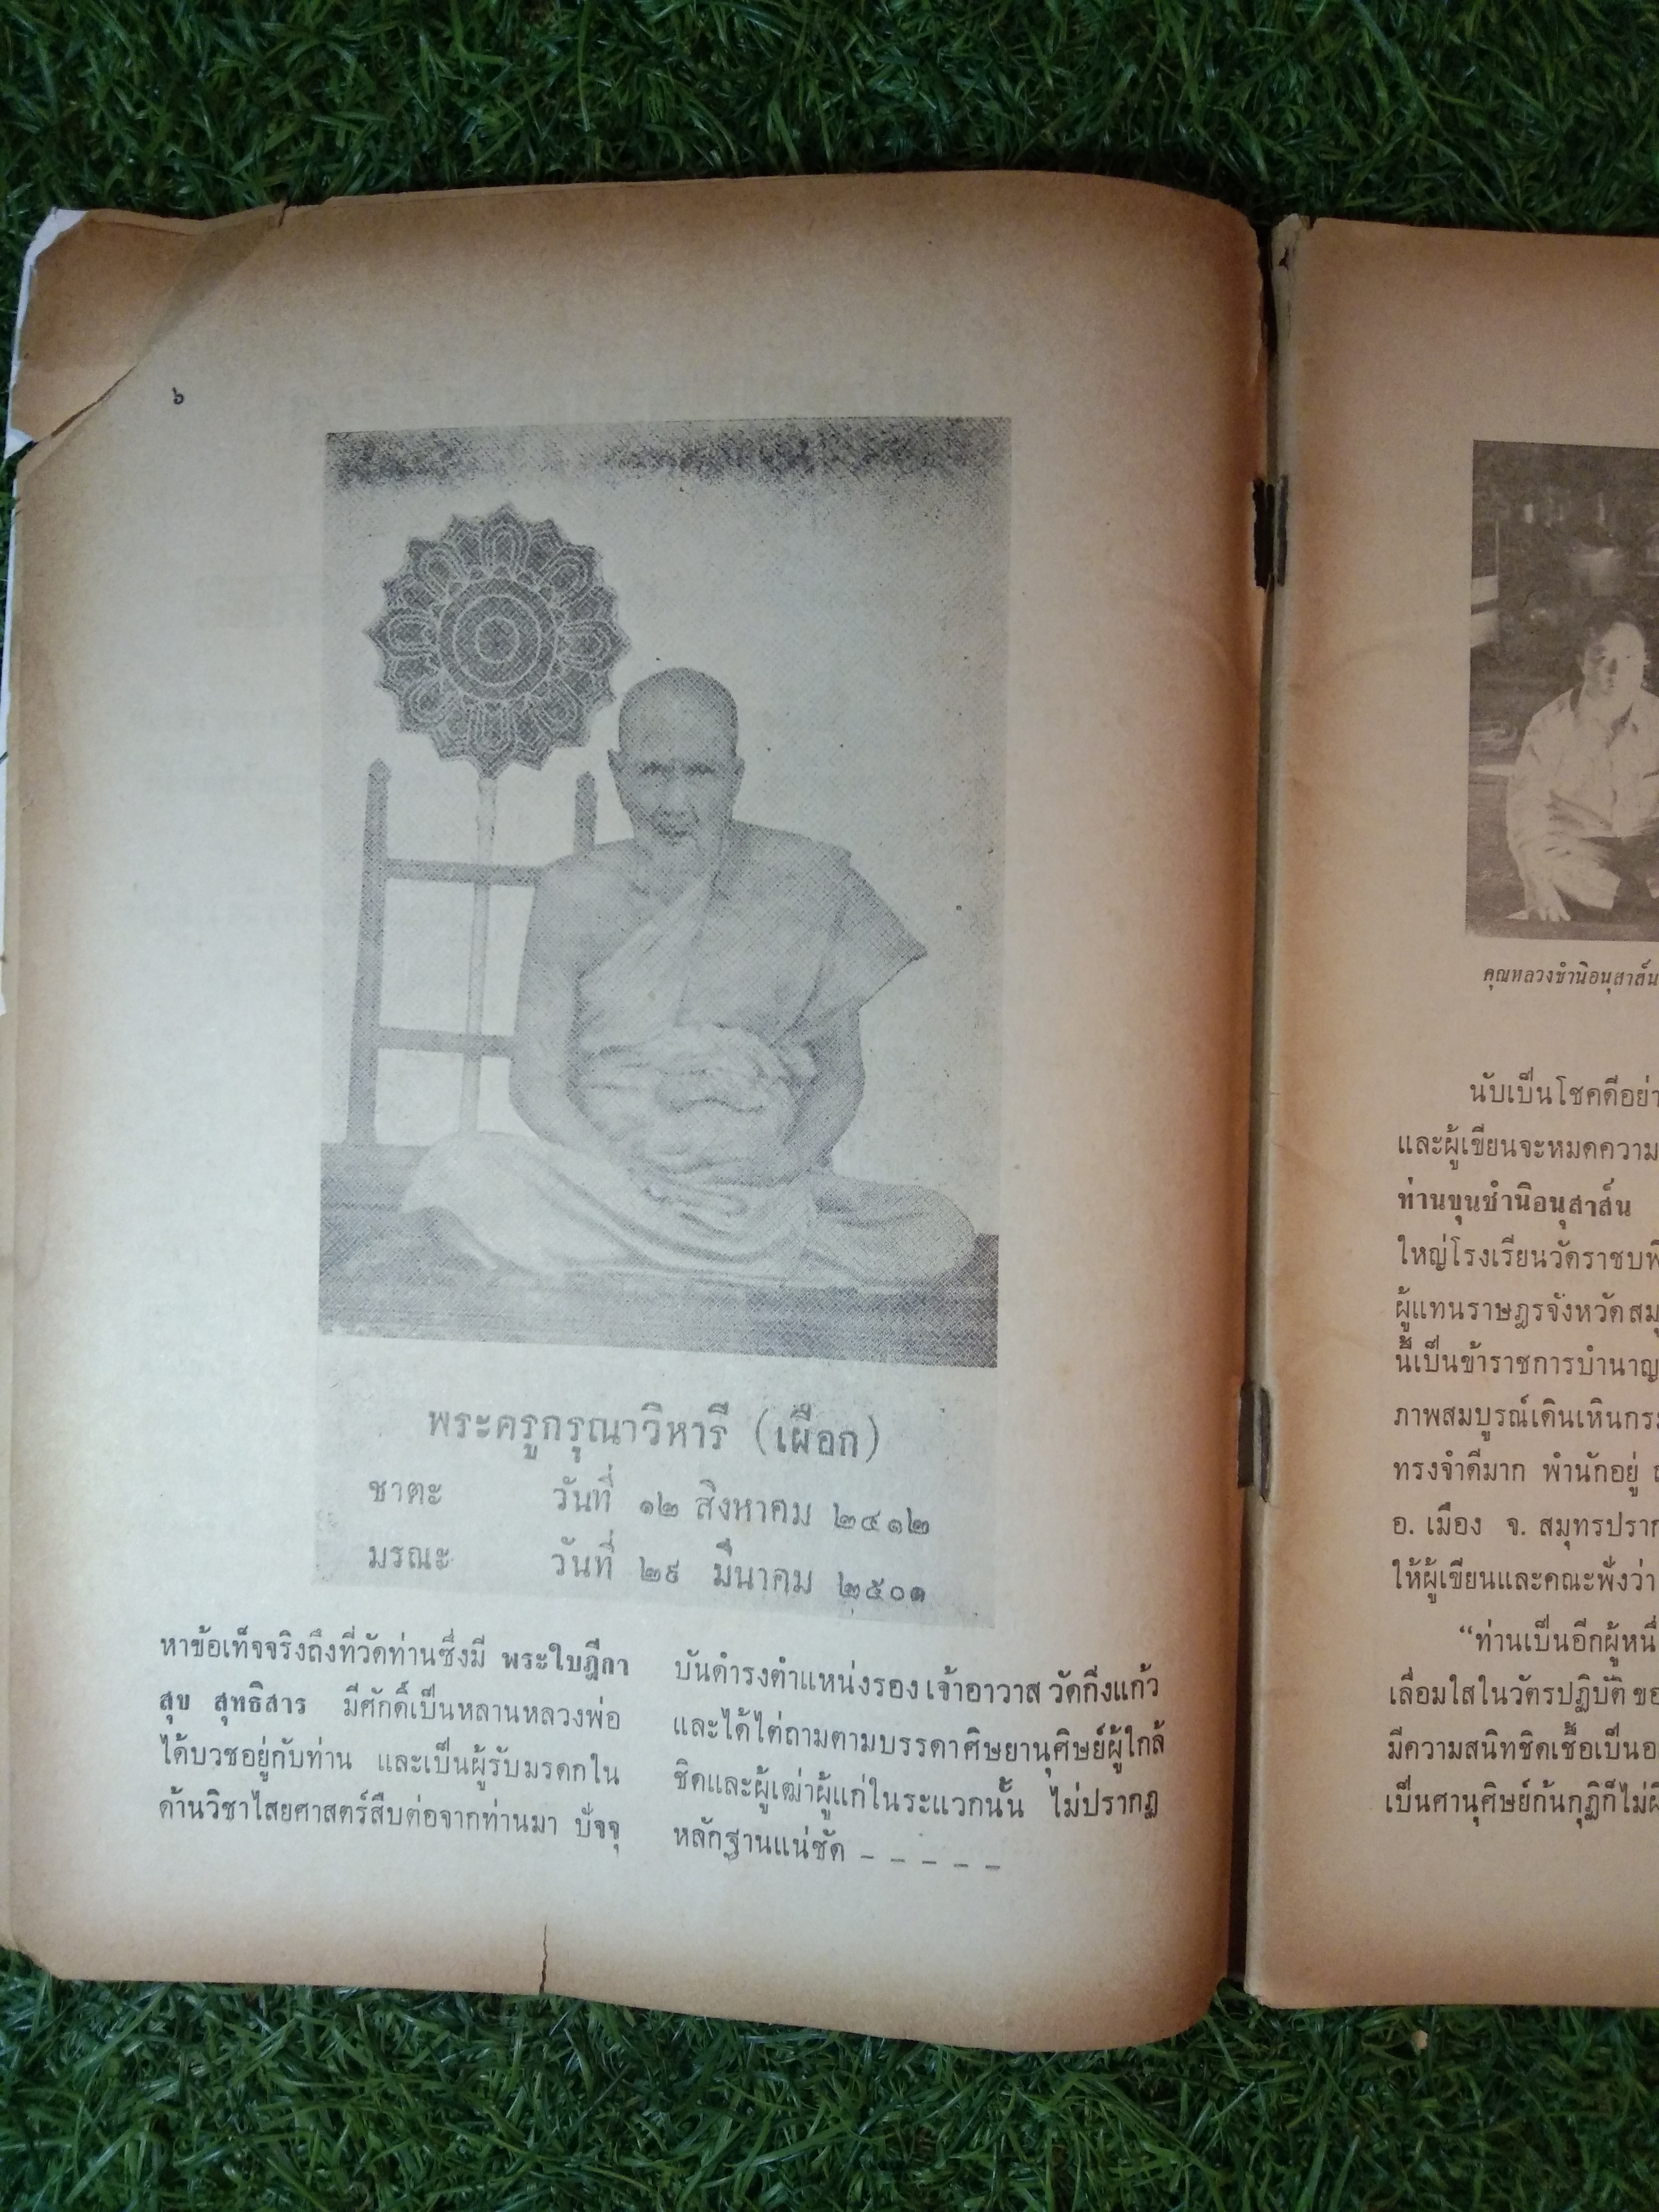 ๖
พระครูกรุณาวิหารี (เผือก)
ชาตะ วันที่ ๑๒ สิงหาคม ๒๔๑๒
มรณะ วันที่ ๒๙ มีนาคม ๒๕๐๑
หาข้อเท็จจริงถึงที่วัดท่านซึ่งมี พระใบฎีกา
สุข สุทธิสาร มีศักดิ์เป็นหลานหลวงพ่อ
ได้บวชอยู่กับท่าน และเป็นผู้รับมรดกใน
ด้านวิชาไสยศาสตร์สืบต่อจากท่านมา ปัจจุ
บันดำรงตำแหน่งรองเจ้าอาวาสวัดกิ่งแก้ว
และได้ไต่ถามตามบรรดาศิษยานุศิษย์ผู้ใกล้
ชิดและผู้เฒ่าผู้แก่ในระแวกนั้น ไม่ปรากฏ
หลักฐานแน่ชัด – – – – –
คุณหลวงชำนิอนุสาส์น
นับเป็นโชคดีอย่า
และผู้เขียนจะหมดความ
ท่านขุนชำนิอนุสาส์น
ใหญ่โรงเรียนวัดราชบพิ
ผู้แทนราษฎรจังหวัดสมุ
นี้เป็นข้าราชการบำนาญ
ภาพสมบูรณ์เดินเหินกระ
ทรงจำดีมาก พำนักอยู่
อ. เมือง จ. สมุทรปราก
ให้ผู้เขียนและคณะฟังว่า
“ท่านเป็นอีกผู้หนึ่
เลื่อมใสในวัตรปฏิบัติ ขอ
มีความสนิทชิดเชื้อเป็นอ
เป็นศานุศิษย์ก้นกุฏิก็ไม่ผิ